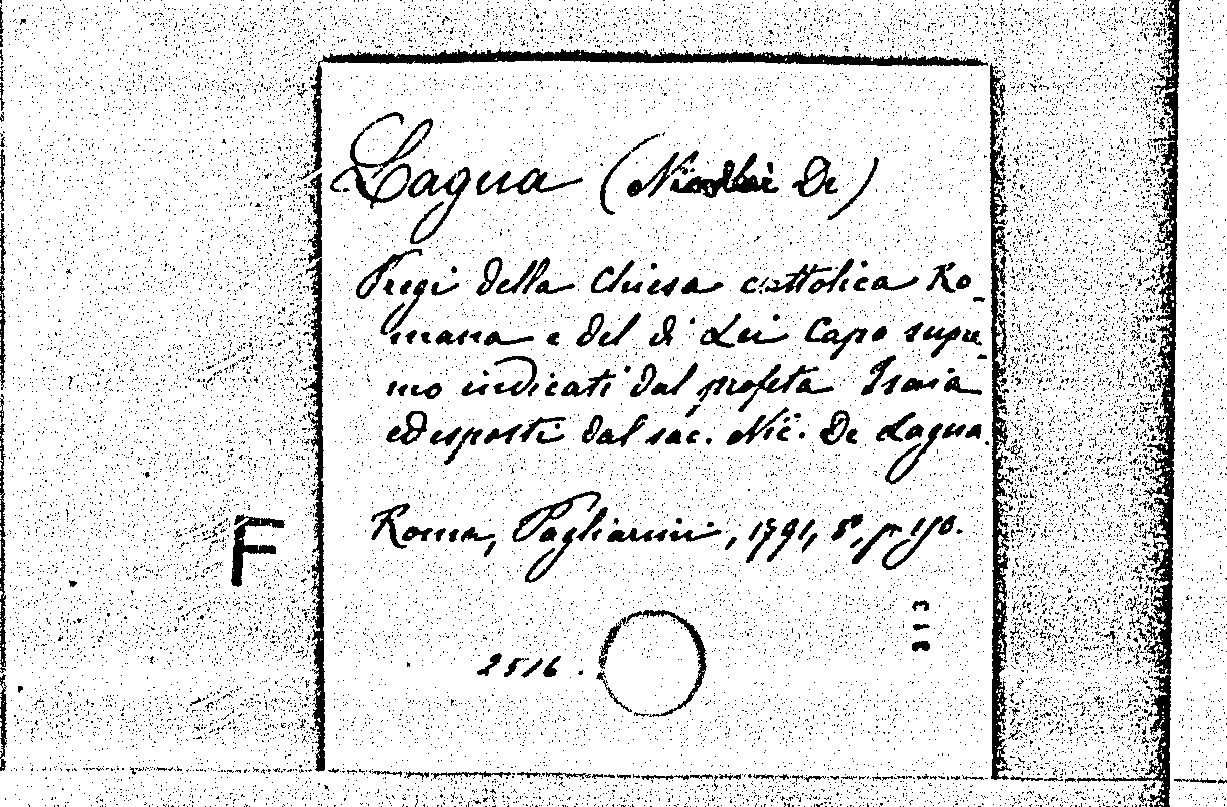 Lagua (Nicolai De)
Pregi della Chiesa cattolica Ro-
mana e del di Lei Capo supre-
mo indicati dal profeta Isaia
ed esposti dal sac. Nic. De Lagua.
Roma, Pagliarini, 1791, 8º, p 190.
F
313
2516.